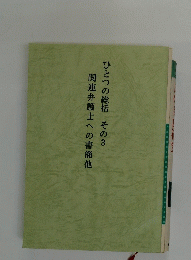 ひとつの総括 その3
関連弁護士への書簡他